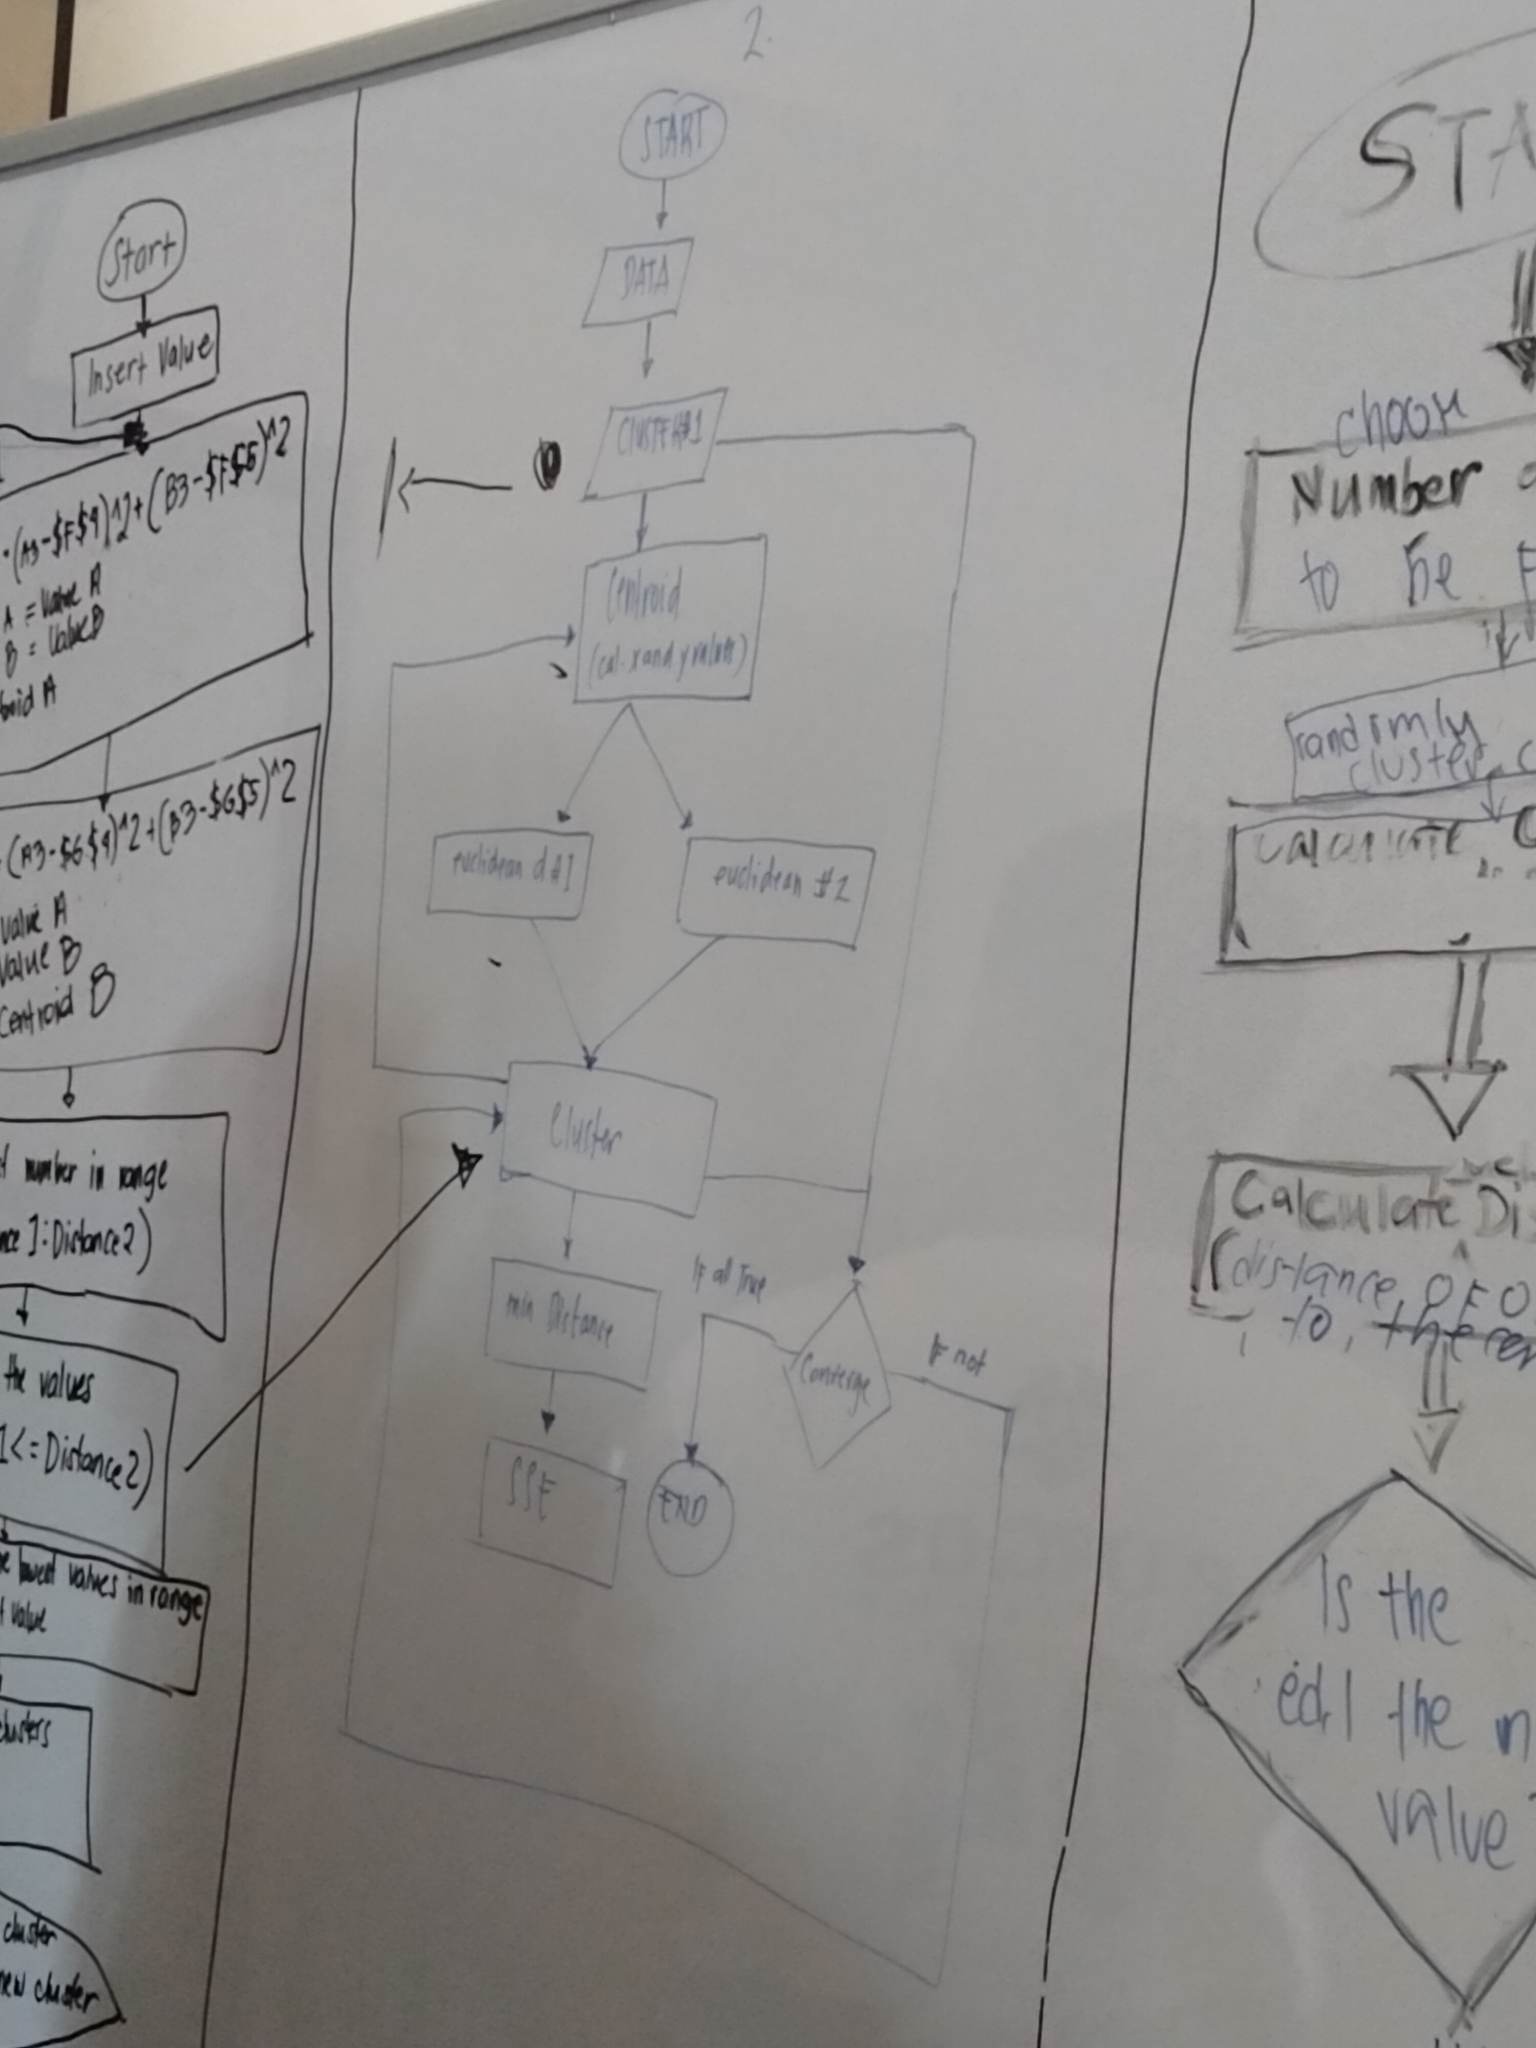 2.
Start
Insert Value
(A3-$F$4)^2+(B3-$F$5)^2
A = Value A
B = Value B
A
(A3-$G$4)^2+(B3-$G$5)^2
Value A
Value B
Centroid B
number in range
1:Distance2)
the values
1<=Distance2)
lowest values in range
value
clusters
cluster
new cluster
START
DATA
CLUSTER#1
Centroid
(cal. x and y values)
euclidean d#1
euclidean #2
Cluster
min Distance
SSE
IF all True
Converge
IF not
END
STA
choose
Number
to be
randomly
cluster
calculate
Calculate Dis
(distance OF O
to, the cen
Is the
ed.1 the m
value?